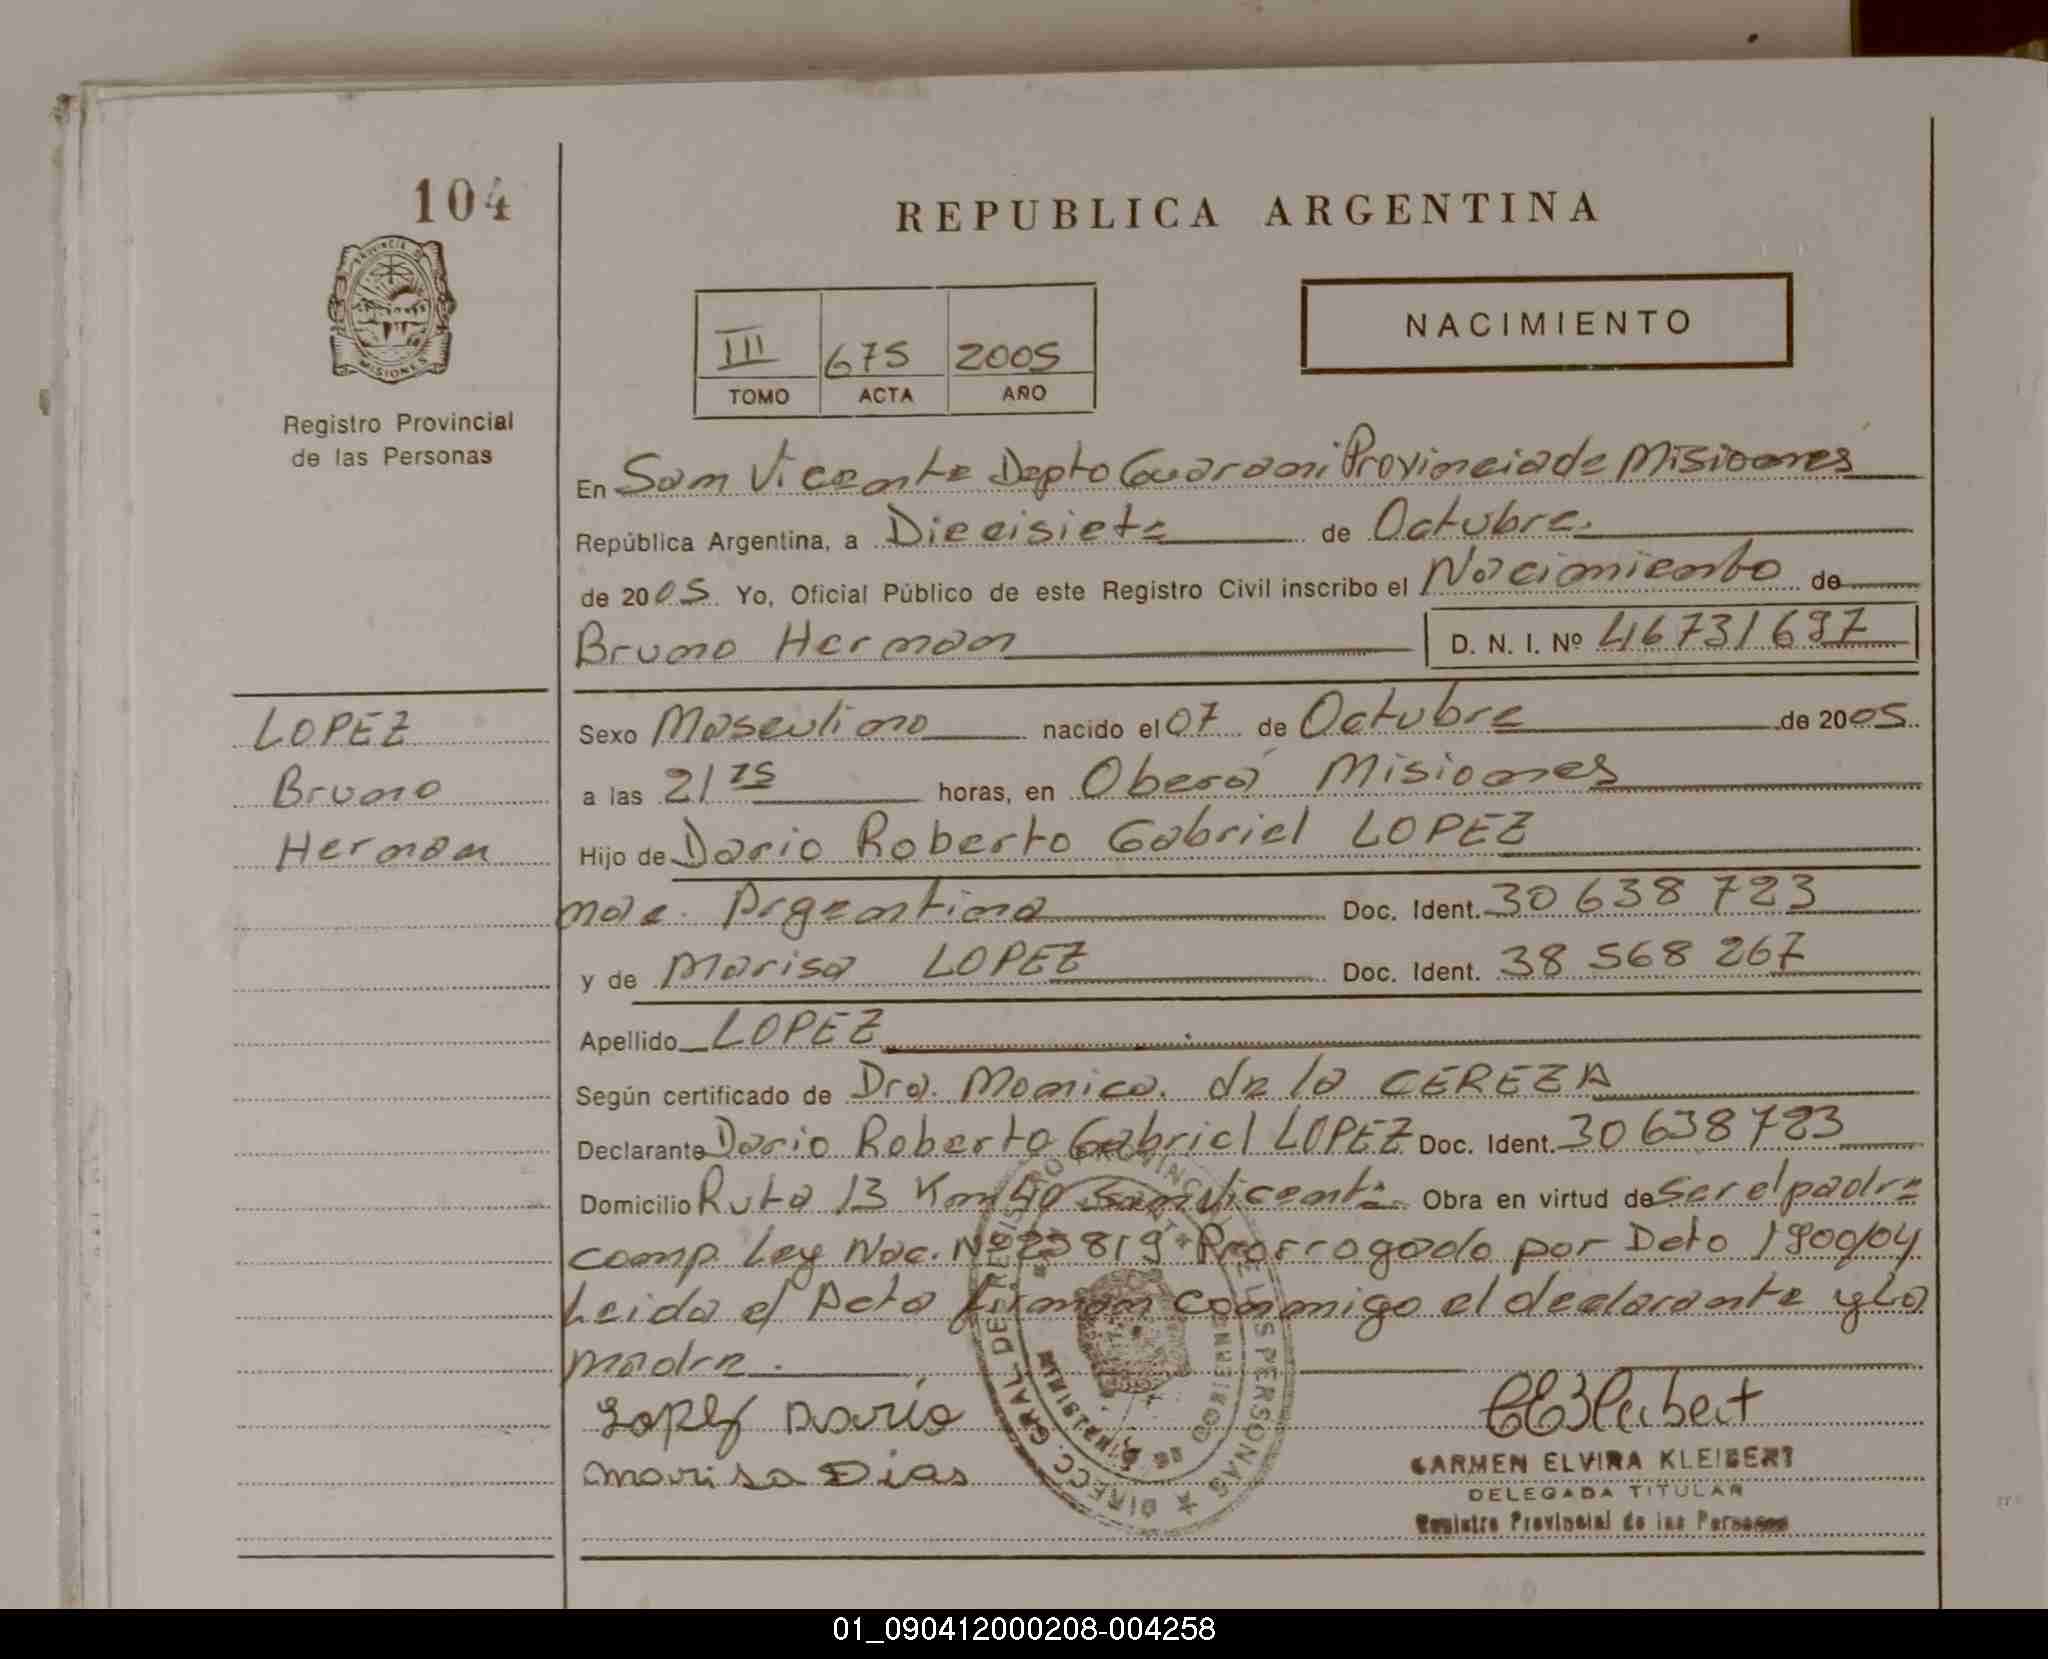 104
REPUBLICA ARGENTINA
PROVINCIA DE
MISIONES
Registro Provincial
de las Personas
III 675 2005
TOMO ACTA AÑO
NACIMIENTO
En San Vicente Depto Guarani Provincia de Misiones
República Argentina, a Diecisiete de Octubre.
de 2005. Yo, Oficial Público de este Registro Civil inscribo el Nacimiento de
Bruno Hernan D. N. I. Nº 46731697
LOPEZ
Bruno
Hernan
Sexo Masculino nacido el 07 de Octubre de 2005.
a las 21 15 horas, en Obera Misiones
Hijo de Dario Roberto Gabriel LOPEZ
nac. Argentina Doc. Ident. 30 638 723
y de Marisa LOPEZ Doc. Ident. 38 568 267
Apellido LOPEZ
Según certificado de Dra. Monica. de la CEREZA
Declarante Dario Roberto Gabriel LOPEZ Doc. Ident. 30 638 723
Domicilio Ruta 13 Km 40 San Vicente. Obra en virtud de ser el padre
comp. Ley Nac. Nº 25819 Prorrogado por Dcto 1900/04
Leida el Acta firman conmigo el declarante y La
madre.
Lopez Dario
Marisa Dias
CARMEN ELVIRA KLEIBERT
DELEGADA TITULAR
Registro Provincial de las Personas
DIRECC. GRAL. DEL REGISTRO PROVINCIAL DE LAS PERSONAS
MINISTERIO DE GOBIERNO
01_090412000208-004258